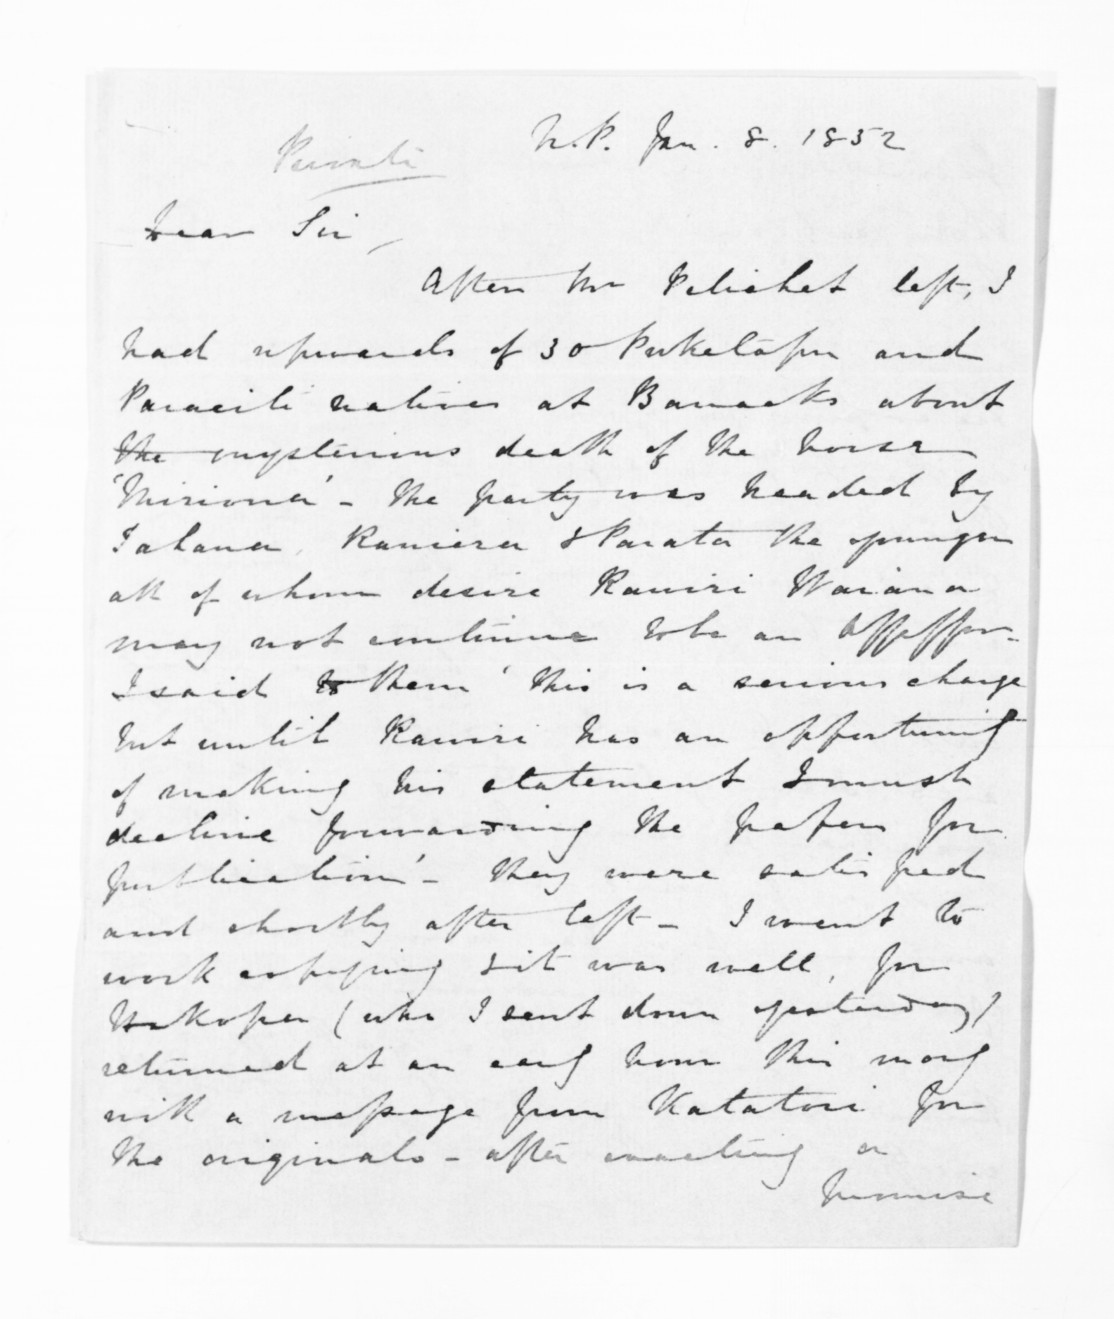 Private
N.P. Jan. 8. 1852
Dear Sir,
After Mr Pelichet left, I
had upwards of 30 Puketapu and
natives at Barracks about
the mysterious death of the horse
- the party was headed by
Tahana, Raniera & Parata the younger
all of whom desire Rawiri Waiaua
may not continue to be an Assessor-
I said to them 'this is a serious charge
but until Rawiri has an opportunity
of making his statement I must
decline forwarding the papers for
publication' - they were satisfied
and shortly after left - I went to
work copying & it was well, for
(who I sent down yesterday)
returned at an early hour this morng
with a message from Katatori for
the originals - after exacting a
promise